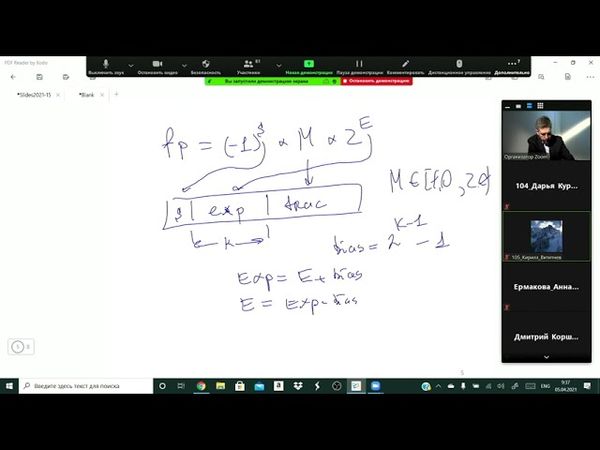 PDF Reader by Xodo
Выключить звук
Остановить видео
Безопасность
Участники
61
Новая демонстрация
Пауза демонстрации
Комментировать
Дистанционное управление
Дополнительно
Вы запустили демонстрацию экрана
Остановить демонстрацию
*Slides2021-15
*Blank
fp = (-1)^s × M × 2^E
s | exp | frac
k
M ∈ [1,0, 2,0)
bias = 2^(k-1) - 1
Exp = E + bias
E = Exp - bias
Организатор Zoom
104_Дарья Кур...
105_Кирилл_Вятитнев
Ермакова_Анна...
Дмитрий Корш...
1
5
Введите здесь текст для поиска
ENG
9:37
05.04.2021